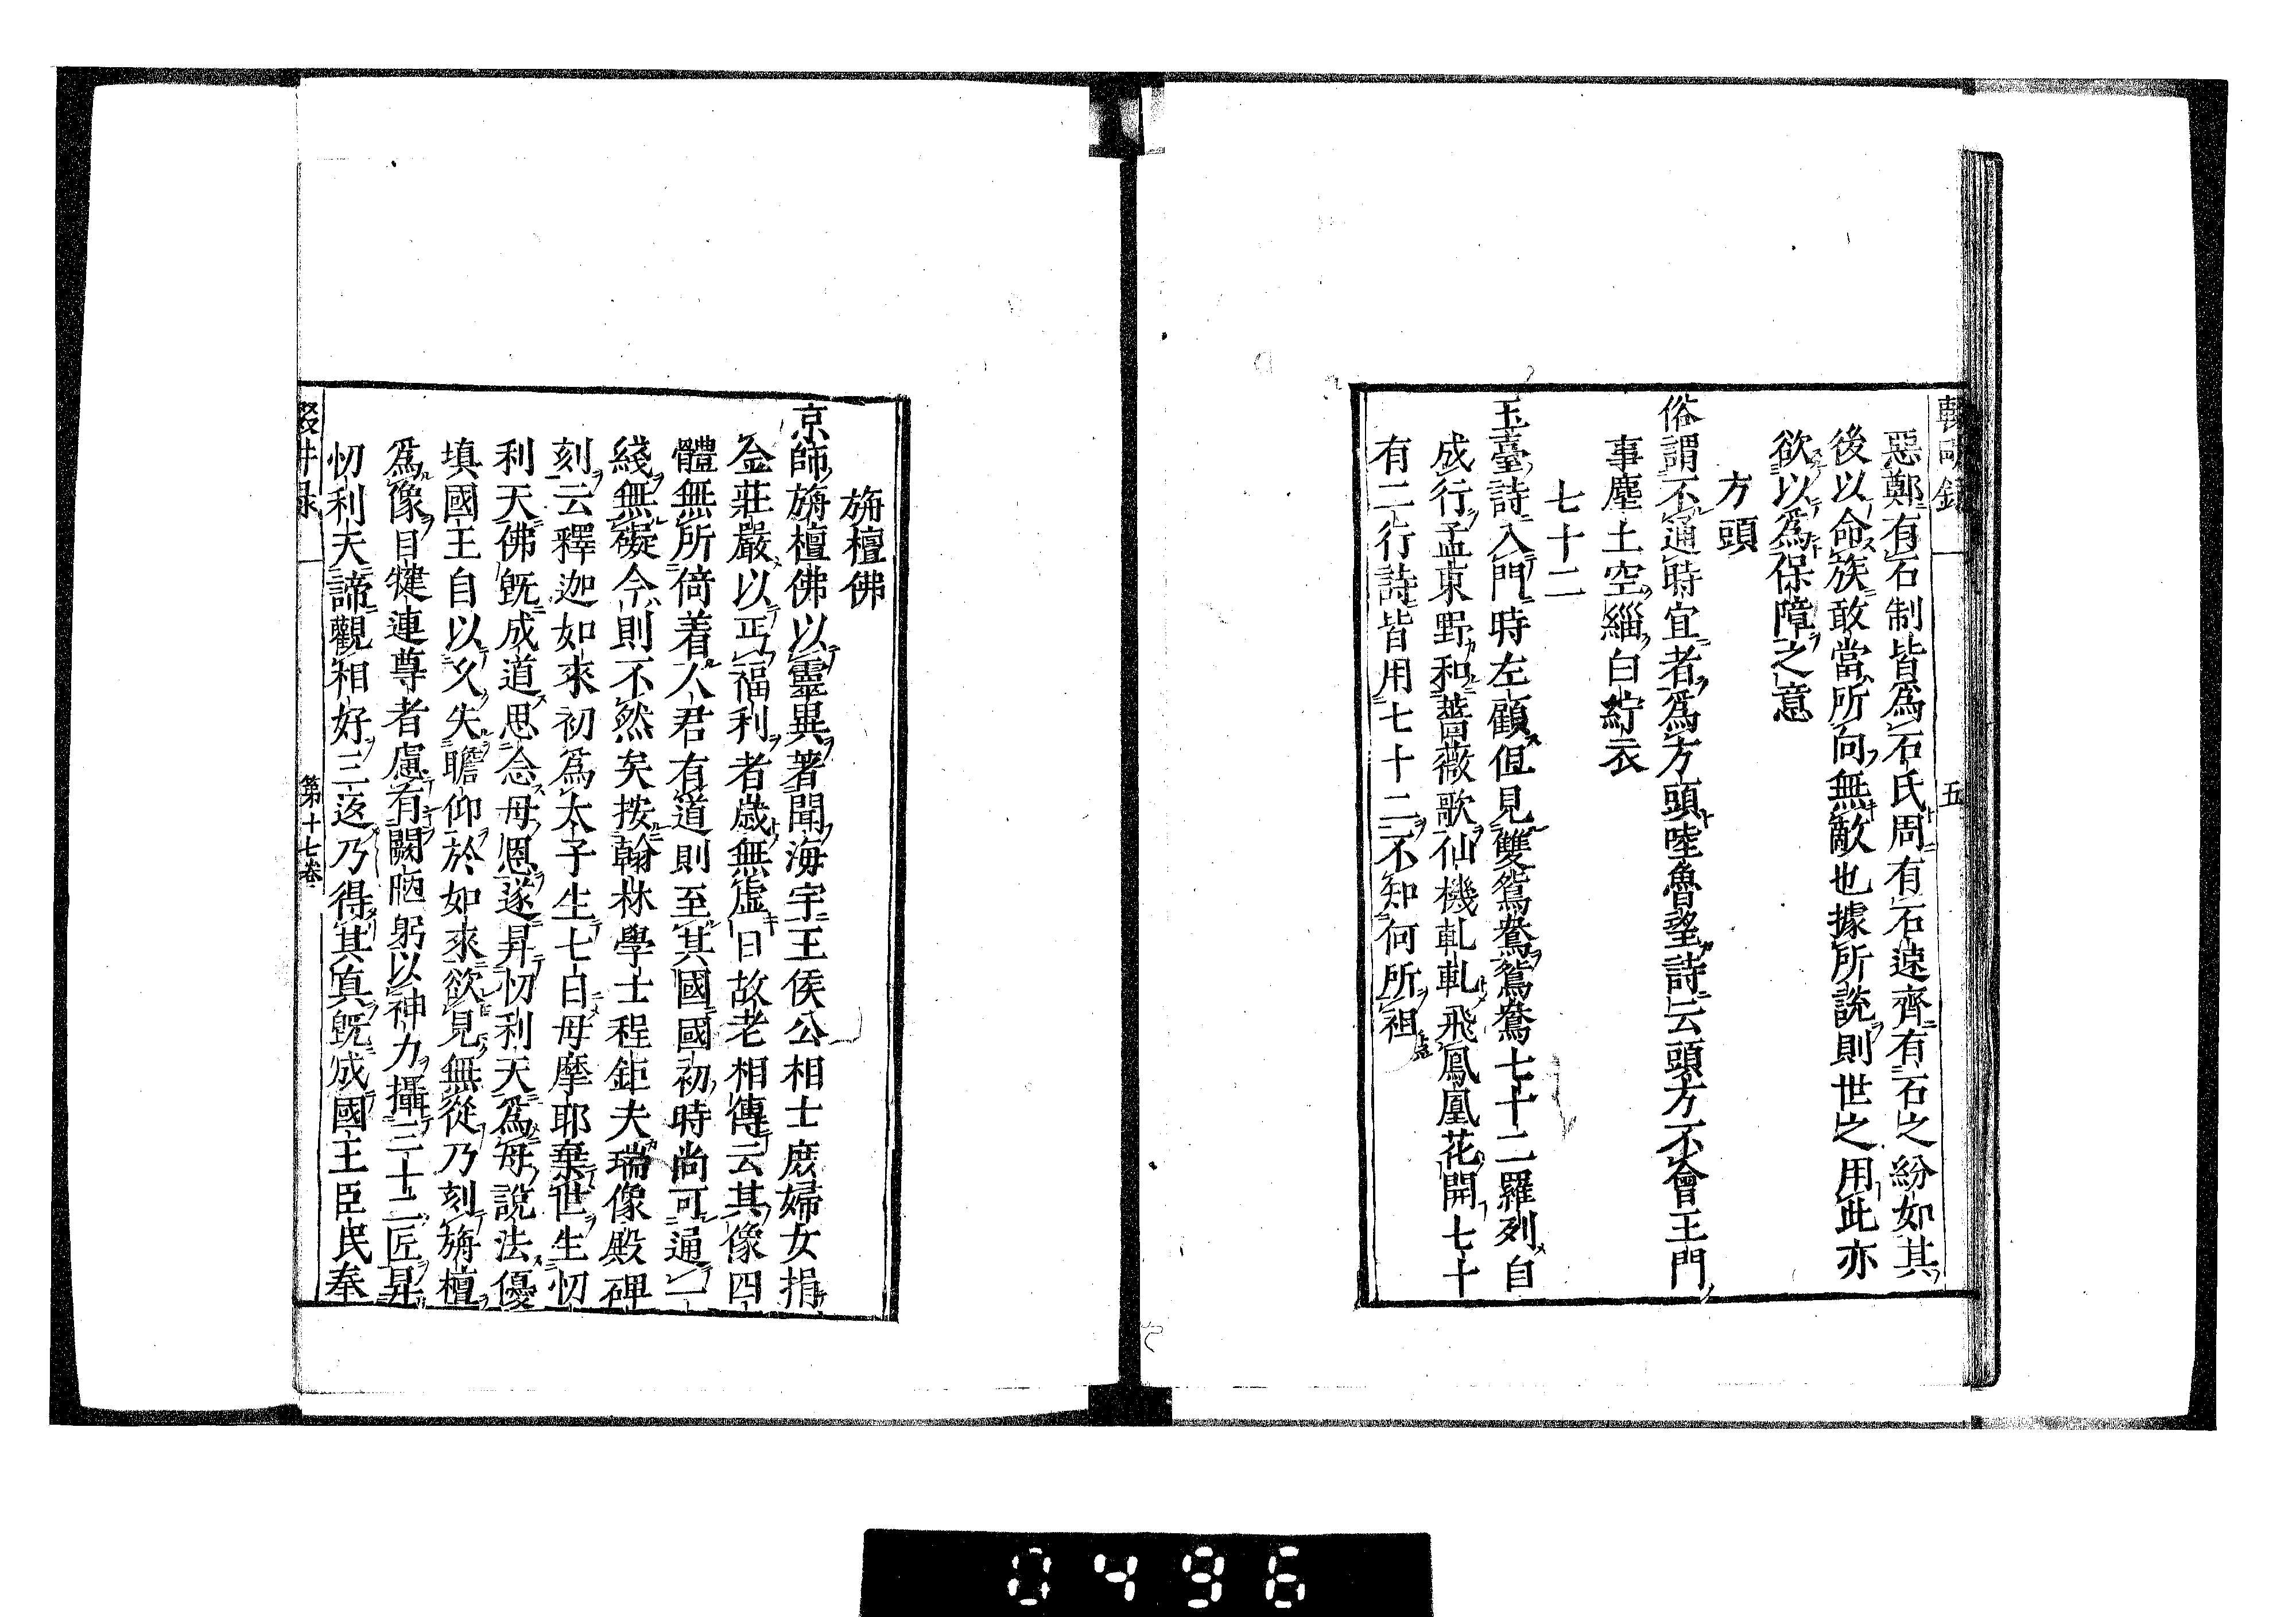 惡鄭有石制皆爲石氏周有石速齊有石之紛如其
後以命族敢當所向無敵也據所說則世之用此亦
欲以爲保障之意
方頭
俗謂不通時宜者爲方頭陸魯望詩云頭方不會王門
事塵土空緇白紵衣
七十二
玉臺詩入門時左顧但見雙鴛鴦鴛鴦七十二羅列自
成行孟東野和薔薇歌仙機軋軋飛鳳凰花開七十
有二行詩皆用七十二不知何所祖
五
旃檀佛
京師旃檀佛以靈異著聞海宇王侯公相士庶婦女捐
金莊嚴以丐福利者歲無虛日故老相傳云其像四
體無所倚着人君有道則至其國國初時尚可通一
綫無礙今則不然矣按翰林學士程鉅夫瑞像殿碑
刻云釋迦如來初爲太子生七日母摩耶棄世生忉
利天佛旣成道思念母恩遂昇忉利天爲母說法優
填國王自以久失瞻仰於如來欲見無從乃刻旃檀
爲像目犍連尊者慮有闕陋躬以神力攝三十二匠昇
忉利天諦觀相好三返乃得其真旣成國王臣民奉
第十七卷
0496